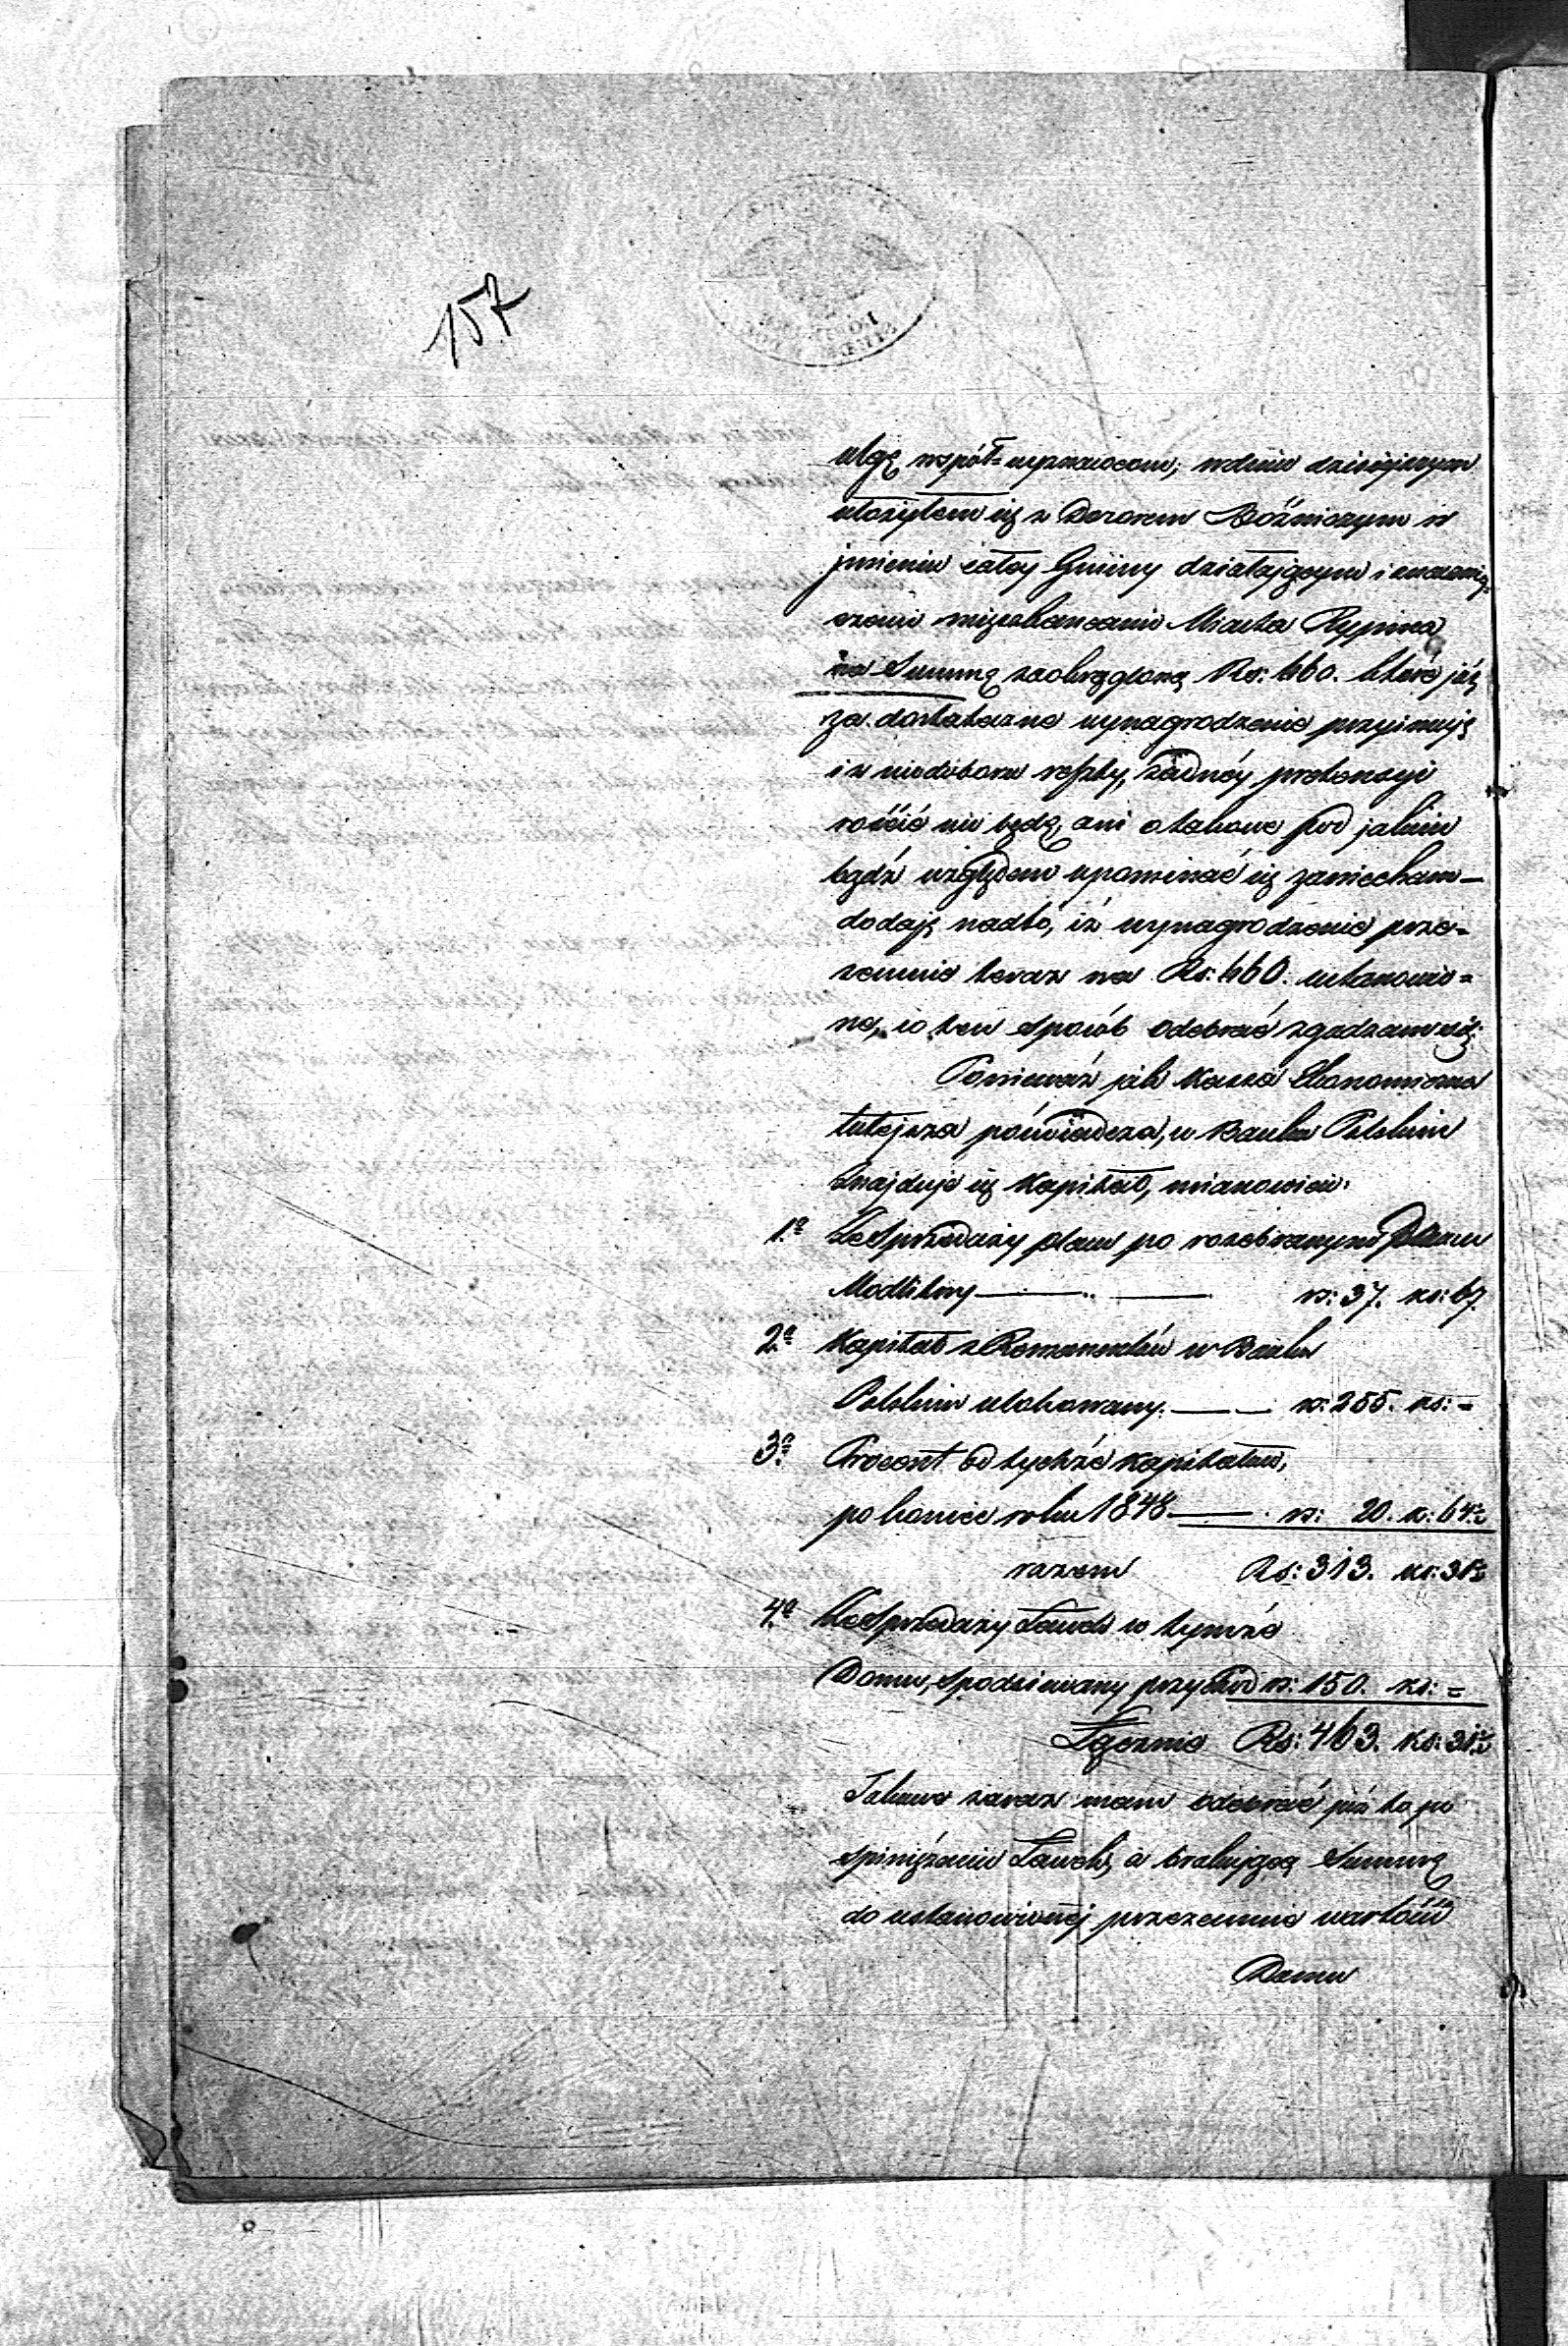 157
ulgę współ-wyznawcom; w dniu dzisiejszym
ułożyłem się z Dozorem Bóżniczym w
jmieniu całéj Gminy działającym i znaczniej-
szemi mięszkańcami Miasta Rypina
na Summę zaokrągloną Rs: 460. które jáż
za dostateczne wynagrodzenie przyimuję
i z niedoboru reszty, żadnéj pretensyi
rościć nie będę, ani o takowe pod jakim
bądź względem upominać się zaniecham —
dodaję nadto, iż wynagrodzenie prze-
zemnie teraz na Rs: 460. ustanowio-
ne, w ten sposób odebrać zgadzam się:
Ponieważ jak Kassa Ekonomiczna
tutejsza poświadcza, w Banku Polskim
znajduje się Kapitał, mianowicie:
1o Ze Sprzedaży placu po rozebranym Domu
Modlitwy — — rs: 37. ks: 67.
2o Kapitał z Remanentów w Banku
Polskim ulokowany. — — rs: 255. ks: =
3o Procent od tychże Kapitałów,
po koniec roku 1848 — rs: 20. k: 64½
razem Rs: 313. ks: 31½
4o Ze Sprzedaży Ławek w tymże
Domu, spodziewany przychód rs: 150. ks: =
Łącznie Rs: 463. ks: 31½
Takowe zaraz mam odebrać jáż to po
spieniężeniu Ławek, a brakującą Summę
do ustanowionéj przezemnie wartości
Domu